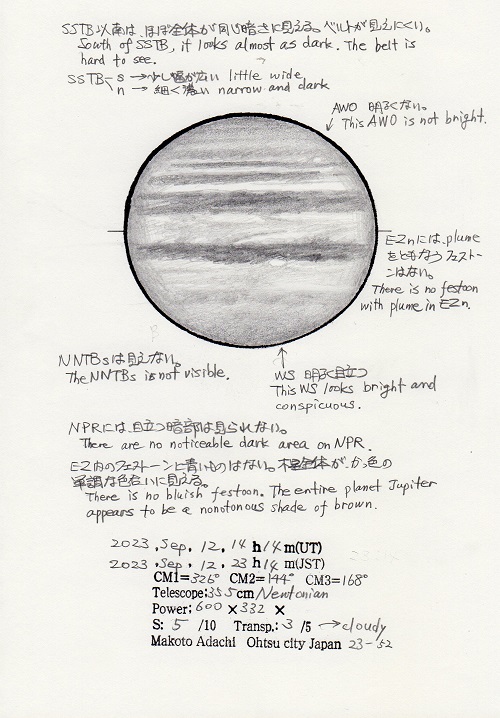 SSTB以南は、ほぼ全体が同じ暗さに見える。ベルトが見えにくい。
South of SSTB, it looks almost as dark. The belt is
hard to see.
SSTB s → 少し幅が広い little wide
n → 細く濃い narrow and dark
AWO 明るくない。
This AWO is not bright.
EZnには、plume
をともなうフェストー
ンはない。
There is no festoon
with plume in EZn.
NNTBsは見えない。
The NNTBs is not visible.
WS 明るく目立つ
This WS looks bright and
conspicuous.
NPRには、目立つ暗部は見られない。
There are no noticeable dark area on NPR.
EZ内のフェストーンに青いものはない。木星全体が、か色の
単調な色合いに見える。
There is no bluish festoon. The entire planet Jupiter
appears to be a nonotonous shade of brown.
2023 . Sep . 12 . 14 h 14 m(UT)
2023 . Sep . 12 . 23 h 14 m(JST)
CM1=326° CM2=144° CM3=168°
Telescope:355cm/Newtonian
Power:600 ×332 ×
S: 5 /10 Transp.:3 /5 →cloudy
Makoto Adachi Ohtsu city Japan 23-52